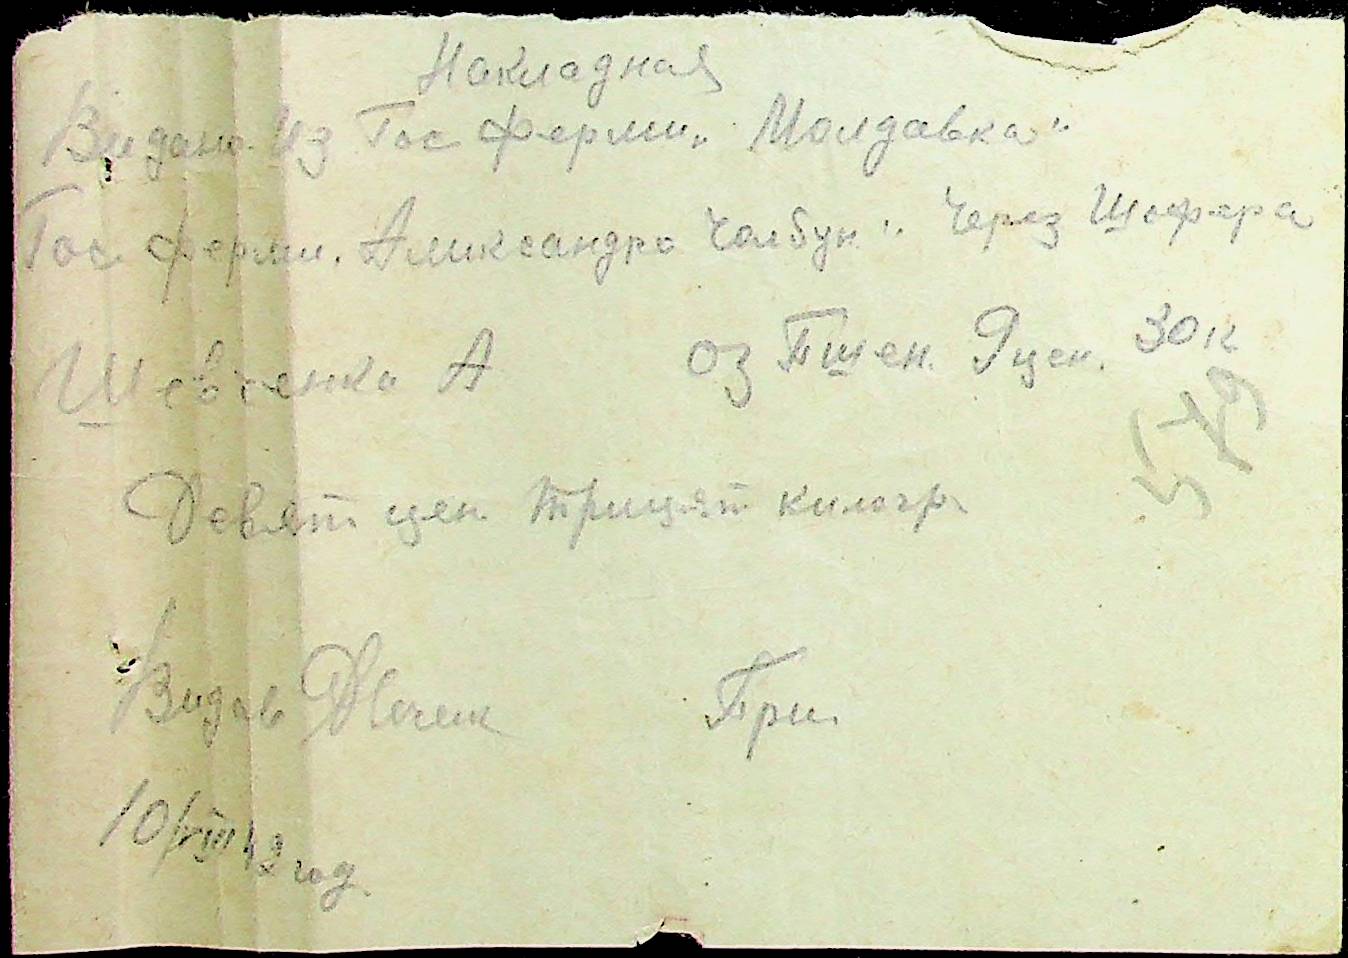 Накладная
Видано Из Гос ферми „Молдавка"
Гос ферми. Аликсандро Чалбун". Через Шофера
Шевченка А оз Пшен. 9 цен. 30 к
549
Девят цен трицят килогр
Видав При
10/VIII 43 год.